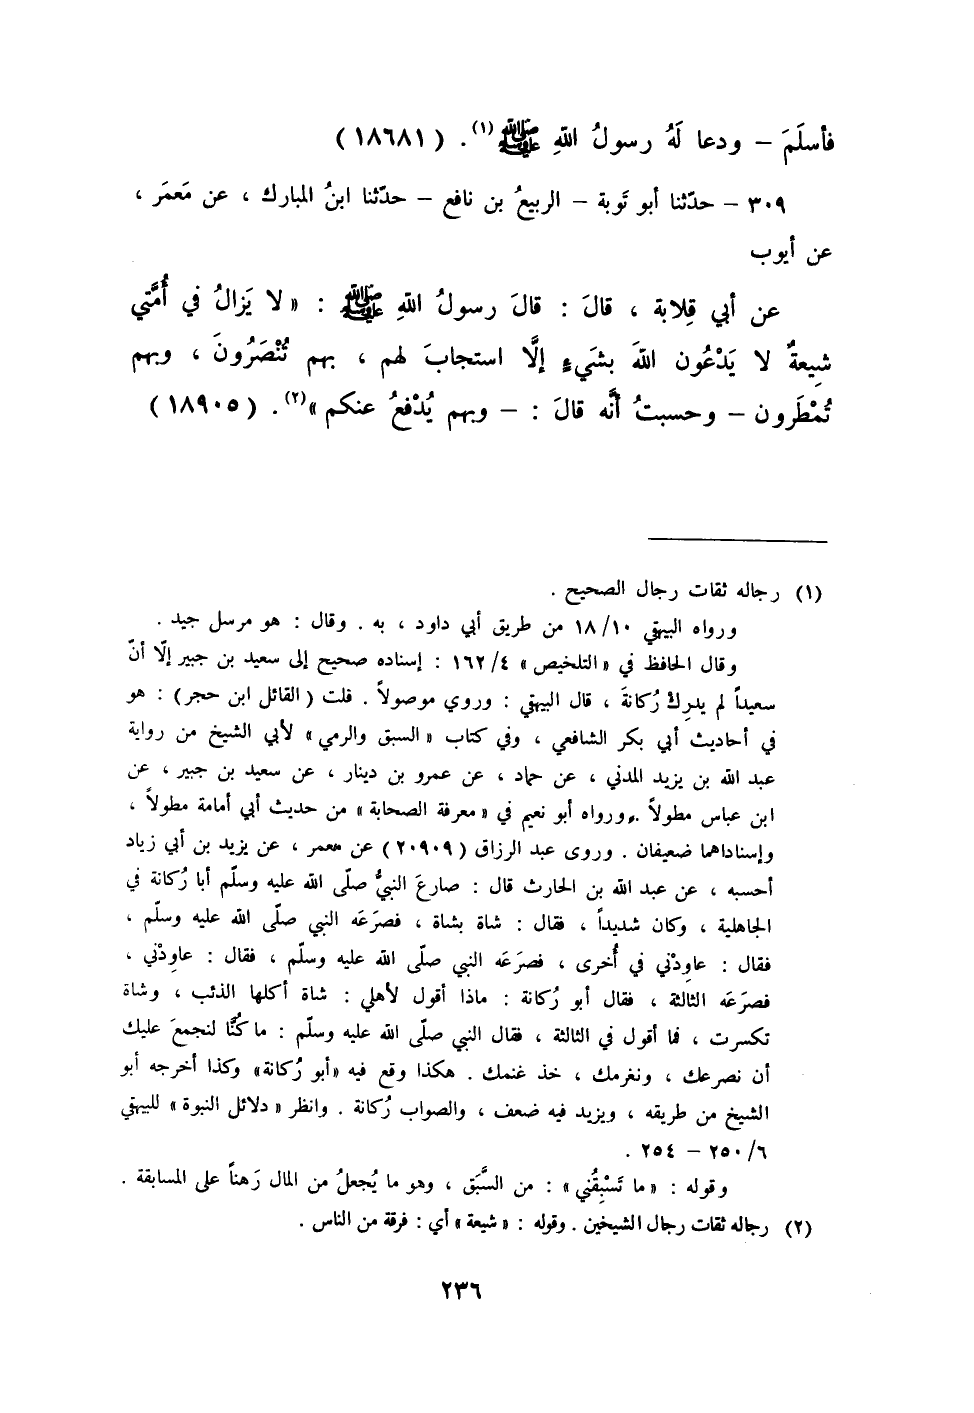 فأسلَمَ – ودعا لَهُ رسولُ اللهِ ﷺ(١) . (١٨٦٨١)
٣٠٩ – حدّثنا أبو تَوبة – الربيعُ بن نافع – حدّثنا ابنُ المبارك ، عن مَعمَر ،
عن أيوب
عن أبي قِلابة ، قالَ : قالَ رسولُ اللهِ ﷺ : « لا يَزالُ في أُمَّتي
شِيعةٌ لا يَدْعُون اللهَ بشَيءٍ إلَّا استجابَ لهم ، بهم تُنْصَرُونَ ، وبهم
تُمْطَرون – وحسبتُ أنَّه قالَ : – وبهم يُدْفعُ عنكم »(٢) . (١٨٩٠٥)
(١) رجاله ثقات رجال الصحيح .
ورواه البيهقي ١٨/١٠ من طريق أبي داود ، به . وقال : هو مرسل جيد .
وقال الحافظ في «التلخيص» ١٦٢/٤ : إسناده صحيح إلى سعيد بن جبير إلّا أنّ
سعيداً لم يدرِكْ رُكانةَ ، قال البيهقي : وروي موصولاً . قلت (القائل ابن حجر) : هو
في أحاديث أبي بكر الشافعي ، وفي كتاب «السبق والرمي» لأبي الشيخ من رواية
عبد الله بن يزيد المدني ، عن حماد ، عن عمرو بن دينار ، عن سعيد بن جبير ، عن
ابن عباس مطولاً . ورواه أبو نعيم في «معرفة الصحابة» من حديث أبي أمامة مطولاً ،
وإسناداهما ضعيفان . وروى عبد الرزاق (٢٠٩٠٩) عن معمر ، عن يزيد بن أبي زياد
أحسبه ، عن عبد الله بن الحارث قال : صارعَ النبيُّ صلّى الله عليه وسلّم أبا رُكانة في
الجاهلية ، وكان شديداً ، فقال : شاة بشاة ، فصرَعَه النبي صلّى الله عليه وسلّم ،
فقال : عاوِدْني في أُخرى ، فصرَعَه النبي صلّى الله عليه وسلّم ، فقال : عاوِدْني ،
فصرَعَه الثالثة ، فقال أبو رُكانة : ماذا أقول لأهلي : شاة أكلها الذئب ، وشاة
تكسرت ، فما أقول في الثالثة ، فقال النبي صلّى الله عليه وسلّم : ما كُنَّا لنجمعَ عليك
أن نصرعك ، ونغرمك ، خذ غنمك . هكذا وقع فيه «أبو رُكانة» وكذا أخرجه أبو
الشيخ من طريقه ، ويزيد فيه ضعف ، والصواب رُكانة . وانظر «دلائل النبوة» للبيهقي
٢٥٠/٦ – ٢٥٤ .
وقوله : «ما تَسْبِقُني» : من السَّبَق ، وهو ما يُجعلُ من المال رَهناً على المسابقة .
(٢) رجاله ثقات رجال الشيخين . وقوله : «شيعة» أي : فرقة من الناس .
٢٣٦